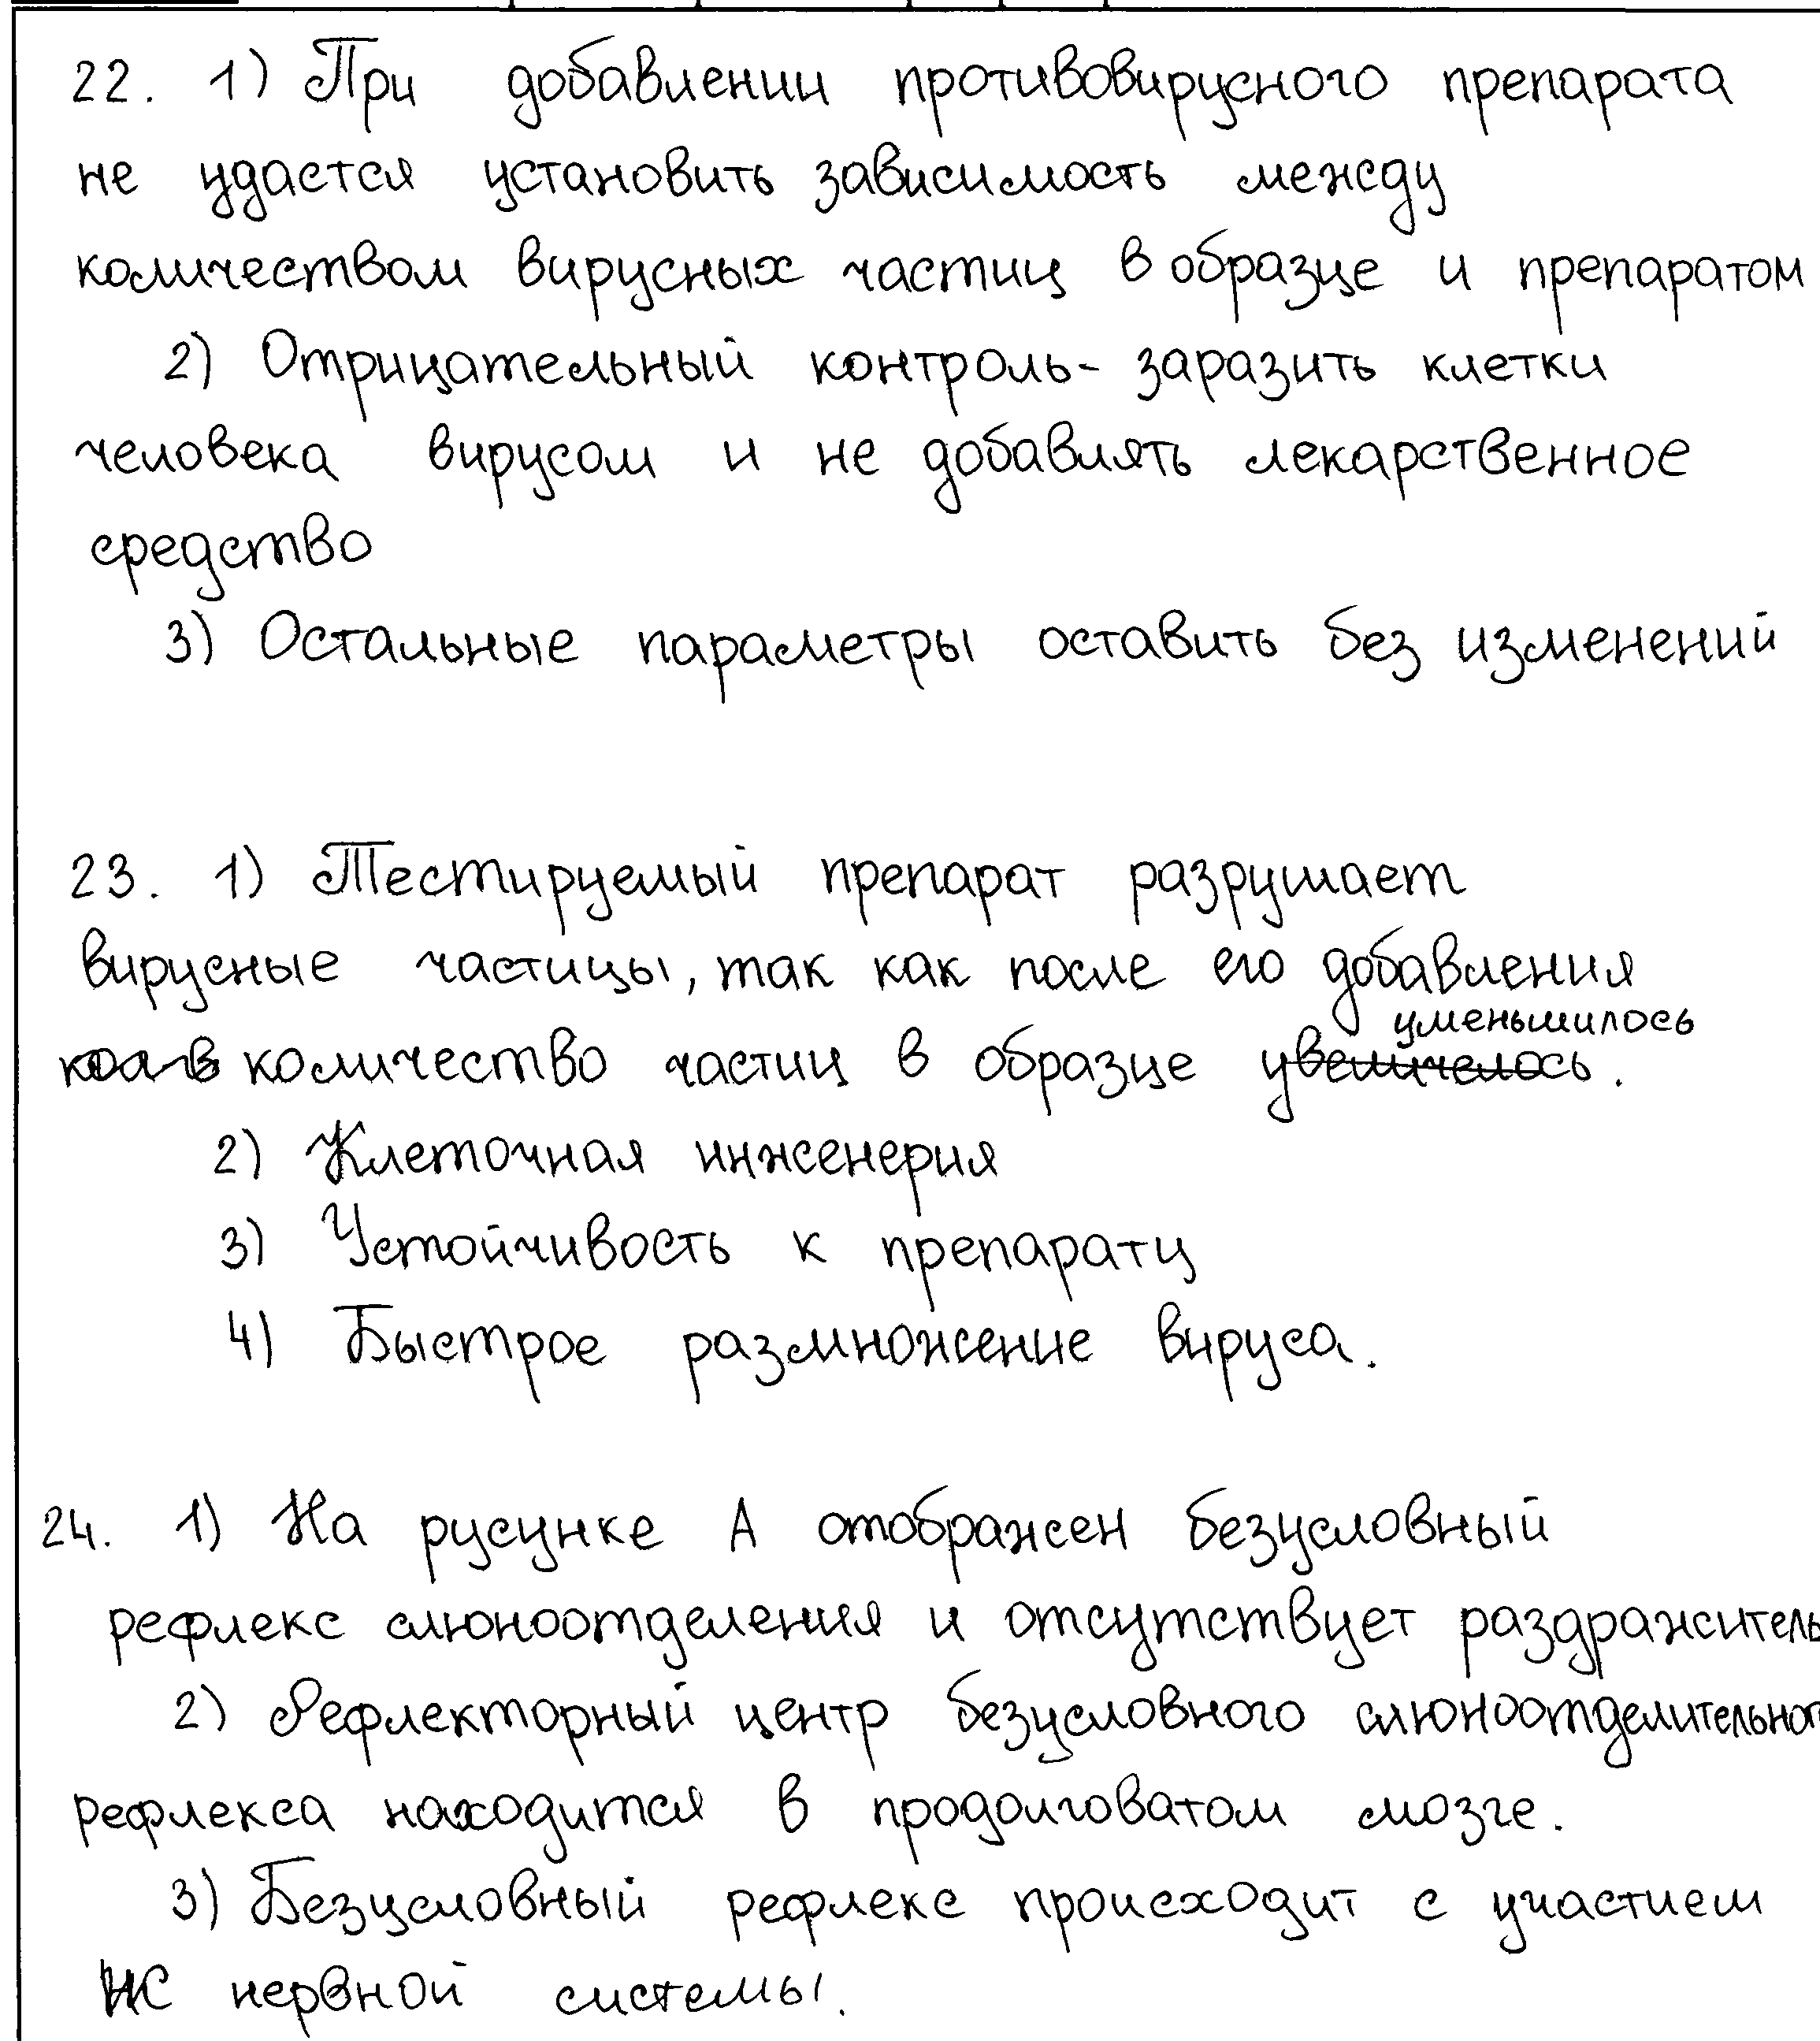 22. 1) При добавлении противовирусного препарата
не удастся установить зависимость между
количеством вирусных частиц в образце и препаратом
2) Отрицательный контроль- заразить клетки
человека вирусом и не добавлять лекарственное
средство
3) Остальные параметры оставить без изменений
23. 1) Тестируемый препарат разрушает
вирусные частицы, так как после его добавления
уменьшилось
количество частиц в образце увеличелось.
2) Клеточная инженерия
3) Устойчивость к препарату
4) Быстрое размножение вируса.
24. 1) На русунке А отображен безусловный
рефлекс слюноотделения и отсутствует раздражитель
2) Рефлекторный центр безусловного слюноотделительног
рефлекса находится в продолговатом мозге.
3) Безусловный рефлекс происходит с участием
нервной системы.